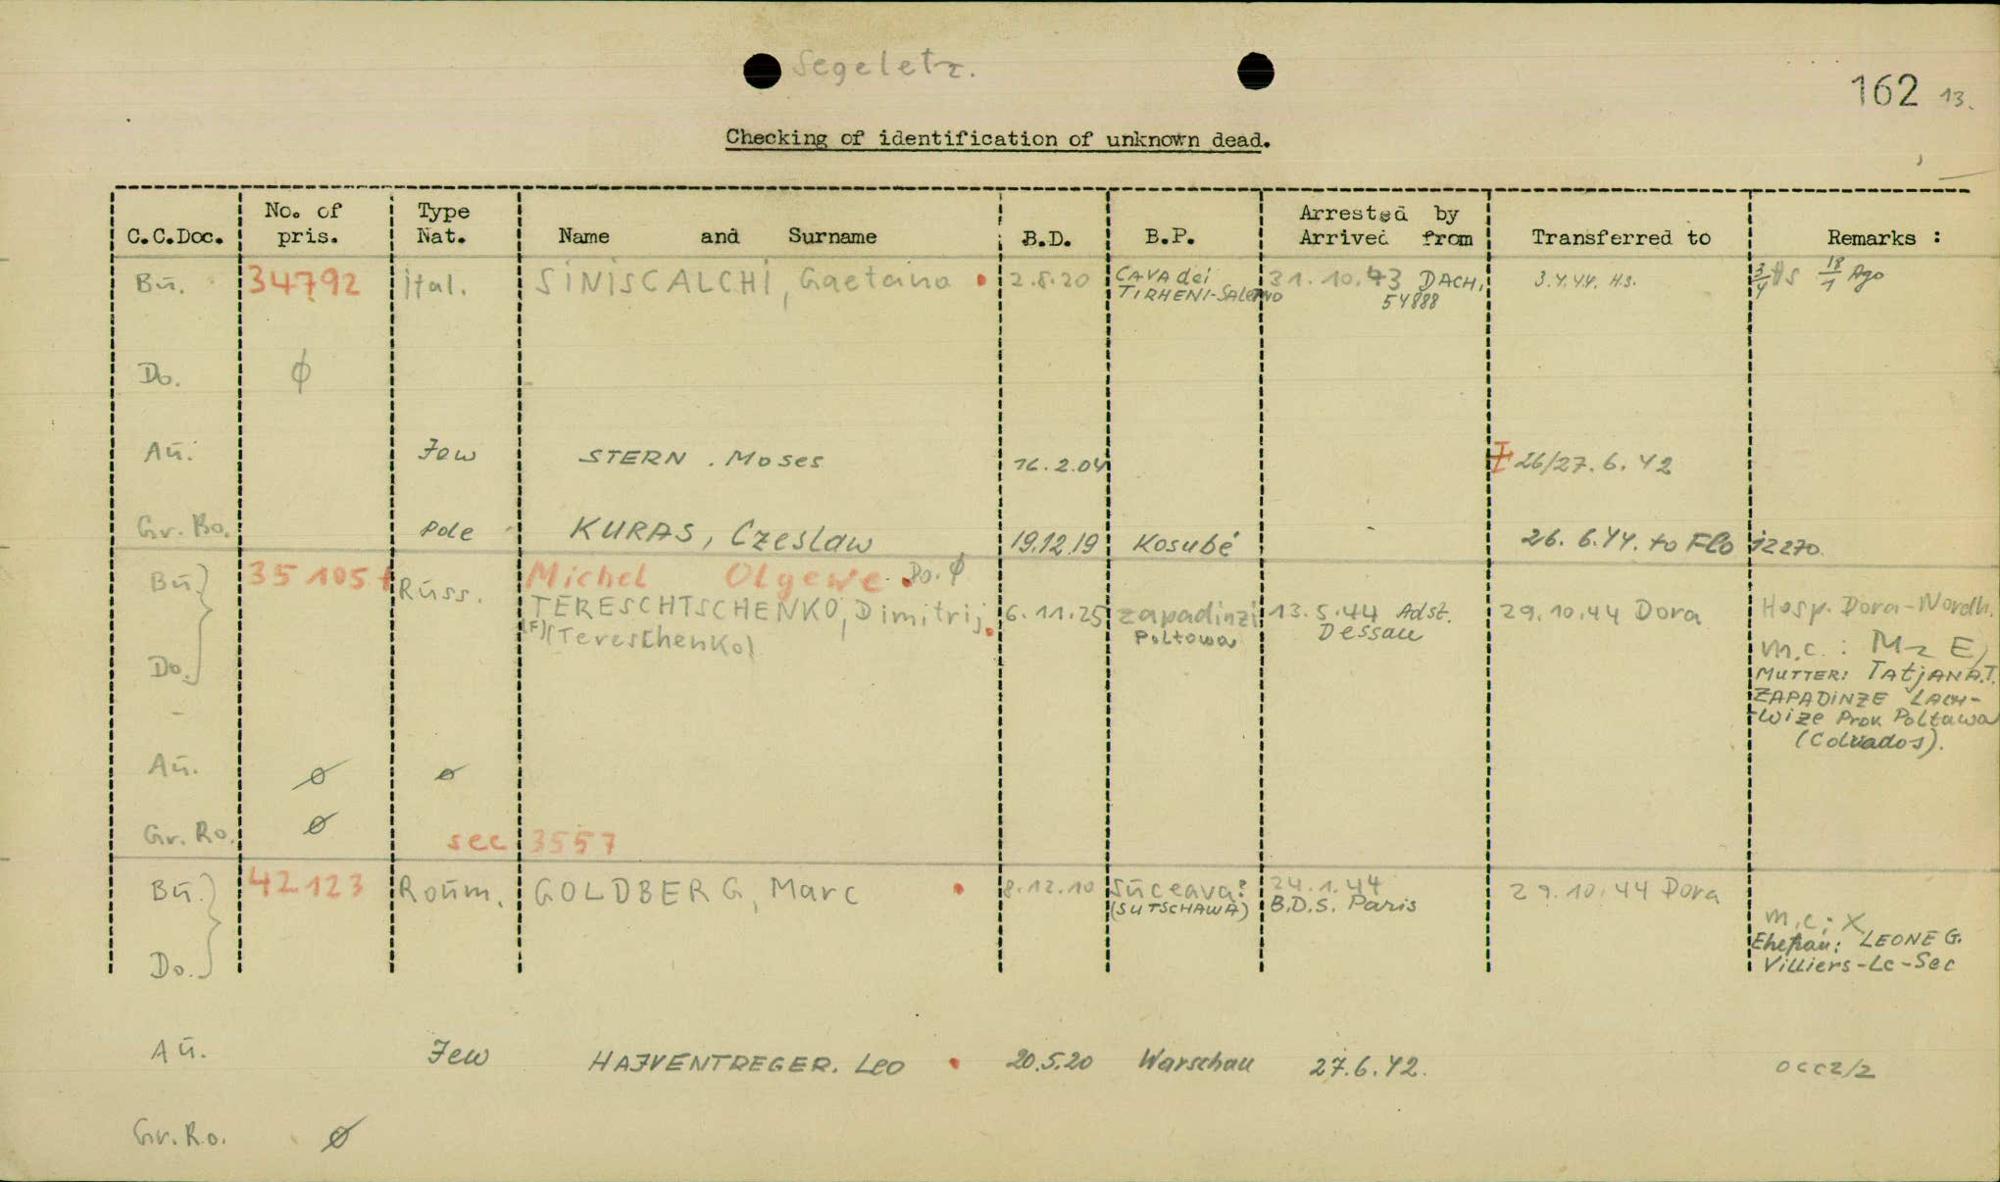 Segeletz.
162 13.
Checking of identification of unknown dead.
C.C.Doc. No. of pris. Type Nat. Name and Surname B.D. B.P. Arrested by Arrived from Transferred to Remarks :
Bu. 34792 ital. SINISCALCHI, Gaetano 2.8.20 CAVA dei TIRHENI-SALERNO 31.10.43 DACH. 54888 3.4.44. H.S. 3/4 HS 18/1 Ago
Do. ϕ
Au. Jew STERN . Moses 16.2.04 26/27.6.42
Gr. Ro. Pole KURAS, Czeslaw 19.12.19 Kosubé 26.6.44. to Flo 12270.
Bu. 35105 Russ. Michel Olgewe Do. ϕ
TERESCHTSCHENKO, Dimitrij 6.11.25 Zapadinzi 13.5.44 Adst. 29.10.44 Dora Hosp. Dora-Nordh.
(F)(Tereschenko) Poltowa Dessau
Do. m.c. : Mz E,
MUTTER: TATJANA.T.
ZAPADINZE LACH-
-WIZE Prov. Poltawa
Au. ø ø
Gr. Ro. ø sec 3557
Bu. 42123 Roum. GOLDBERG, Marc 8.12.10 Suceava? 24.1.44 29.10.44 Dora
(SUTSCHAWA) B.D.S. Paris
m.c: X
Ehefrau: LEONE G.
Do. Villiers-Le-Sec
Au. Jew HAJVENTREGER. Leo 20.5.20 Warschau 27.6.42. OCC2/2
Gr. Ro. ø